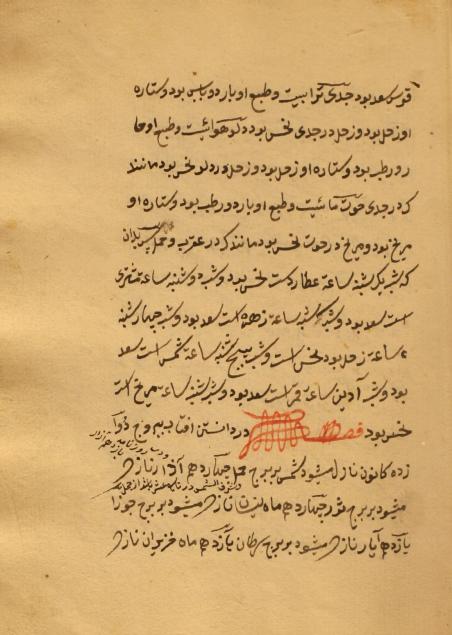 قوس سعد بود جدی ترابیست و طبع او بارد و یابس بود و ستاره
او زحل بود و زحل در جدی نحس بود دلو هوائیست و طبع او حا
ر و رطب بود و ستاره او زحل بود و زحل در دلو نحس بود مانند
که در جدی حوت مائیست و طبع او بارد و رطب بود و ستاره او
مریخ بود و مریخ در حوت نحس بود مانند که در عقرب و حمل پس بدان
که شب یکشنبه ساعة عطاردست نحس بود و شب دوشنبه ساعة مشتری
است سعد بود و شب سه‌شنبه ساعة زهره است سعد بود و شب چهارشنبه
ساعة زحل بود نحس است و شب پنج شنبه ساعة شمس است سعد
بود و شب آدین ساعة قمر است سعد بود و شب شنبه ساعة مریخ است
نحس بود فصل در دانستن افتاب ببروج دوا
زده کانون نازل میشود شمس ببرج حمل چهاردهم آذار نازل
میشود ببرج ثور چهاردهم ماه نیسان نازل میشود ببرج جوزا
یازدهم آیار نازل میشود ببرج سرطان یازدهم ماه حزیران نازل